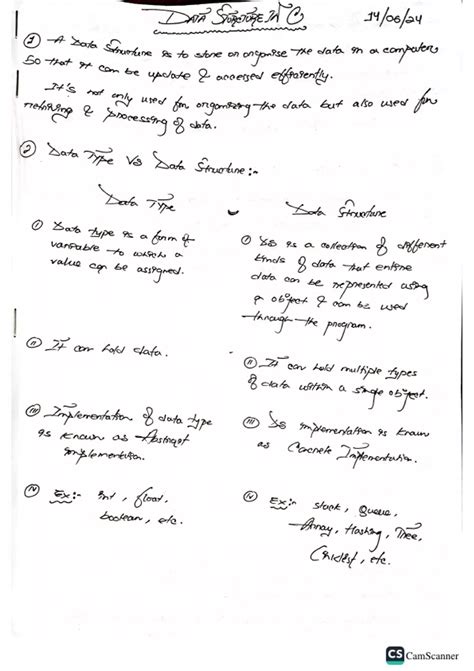 DATA STRUCTURE IN C
14/06/24
① A Data Structure is to store or organise the data in a computer
So that it can be update & accessed efficiently.
It's not only used for organizing the data but also used for
retriving & processing of data.
② Data Type Vs Data Structure:-
Data Type
Data Structure
① Data type is a form of
variable to which a
value can be assigned.
① DS is a collection of different
kinds of data that entire
data can be represented using
a object & can be used
through the program.
② It can hold data.
② It can hold multiple types
of data within a single object.
③ Implementation of data type
is known as Abstract
implementation.
③ DS implementation is known
as Concrete Implementation.
④ Ex:- int, float,
boolean, etc.
④ Ex:- stack, Queue,
Array, Hashing, Tree,
etc.
CS CamScanner